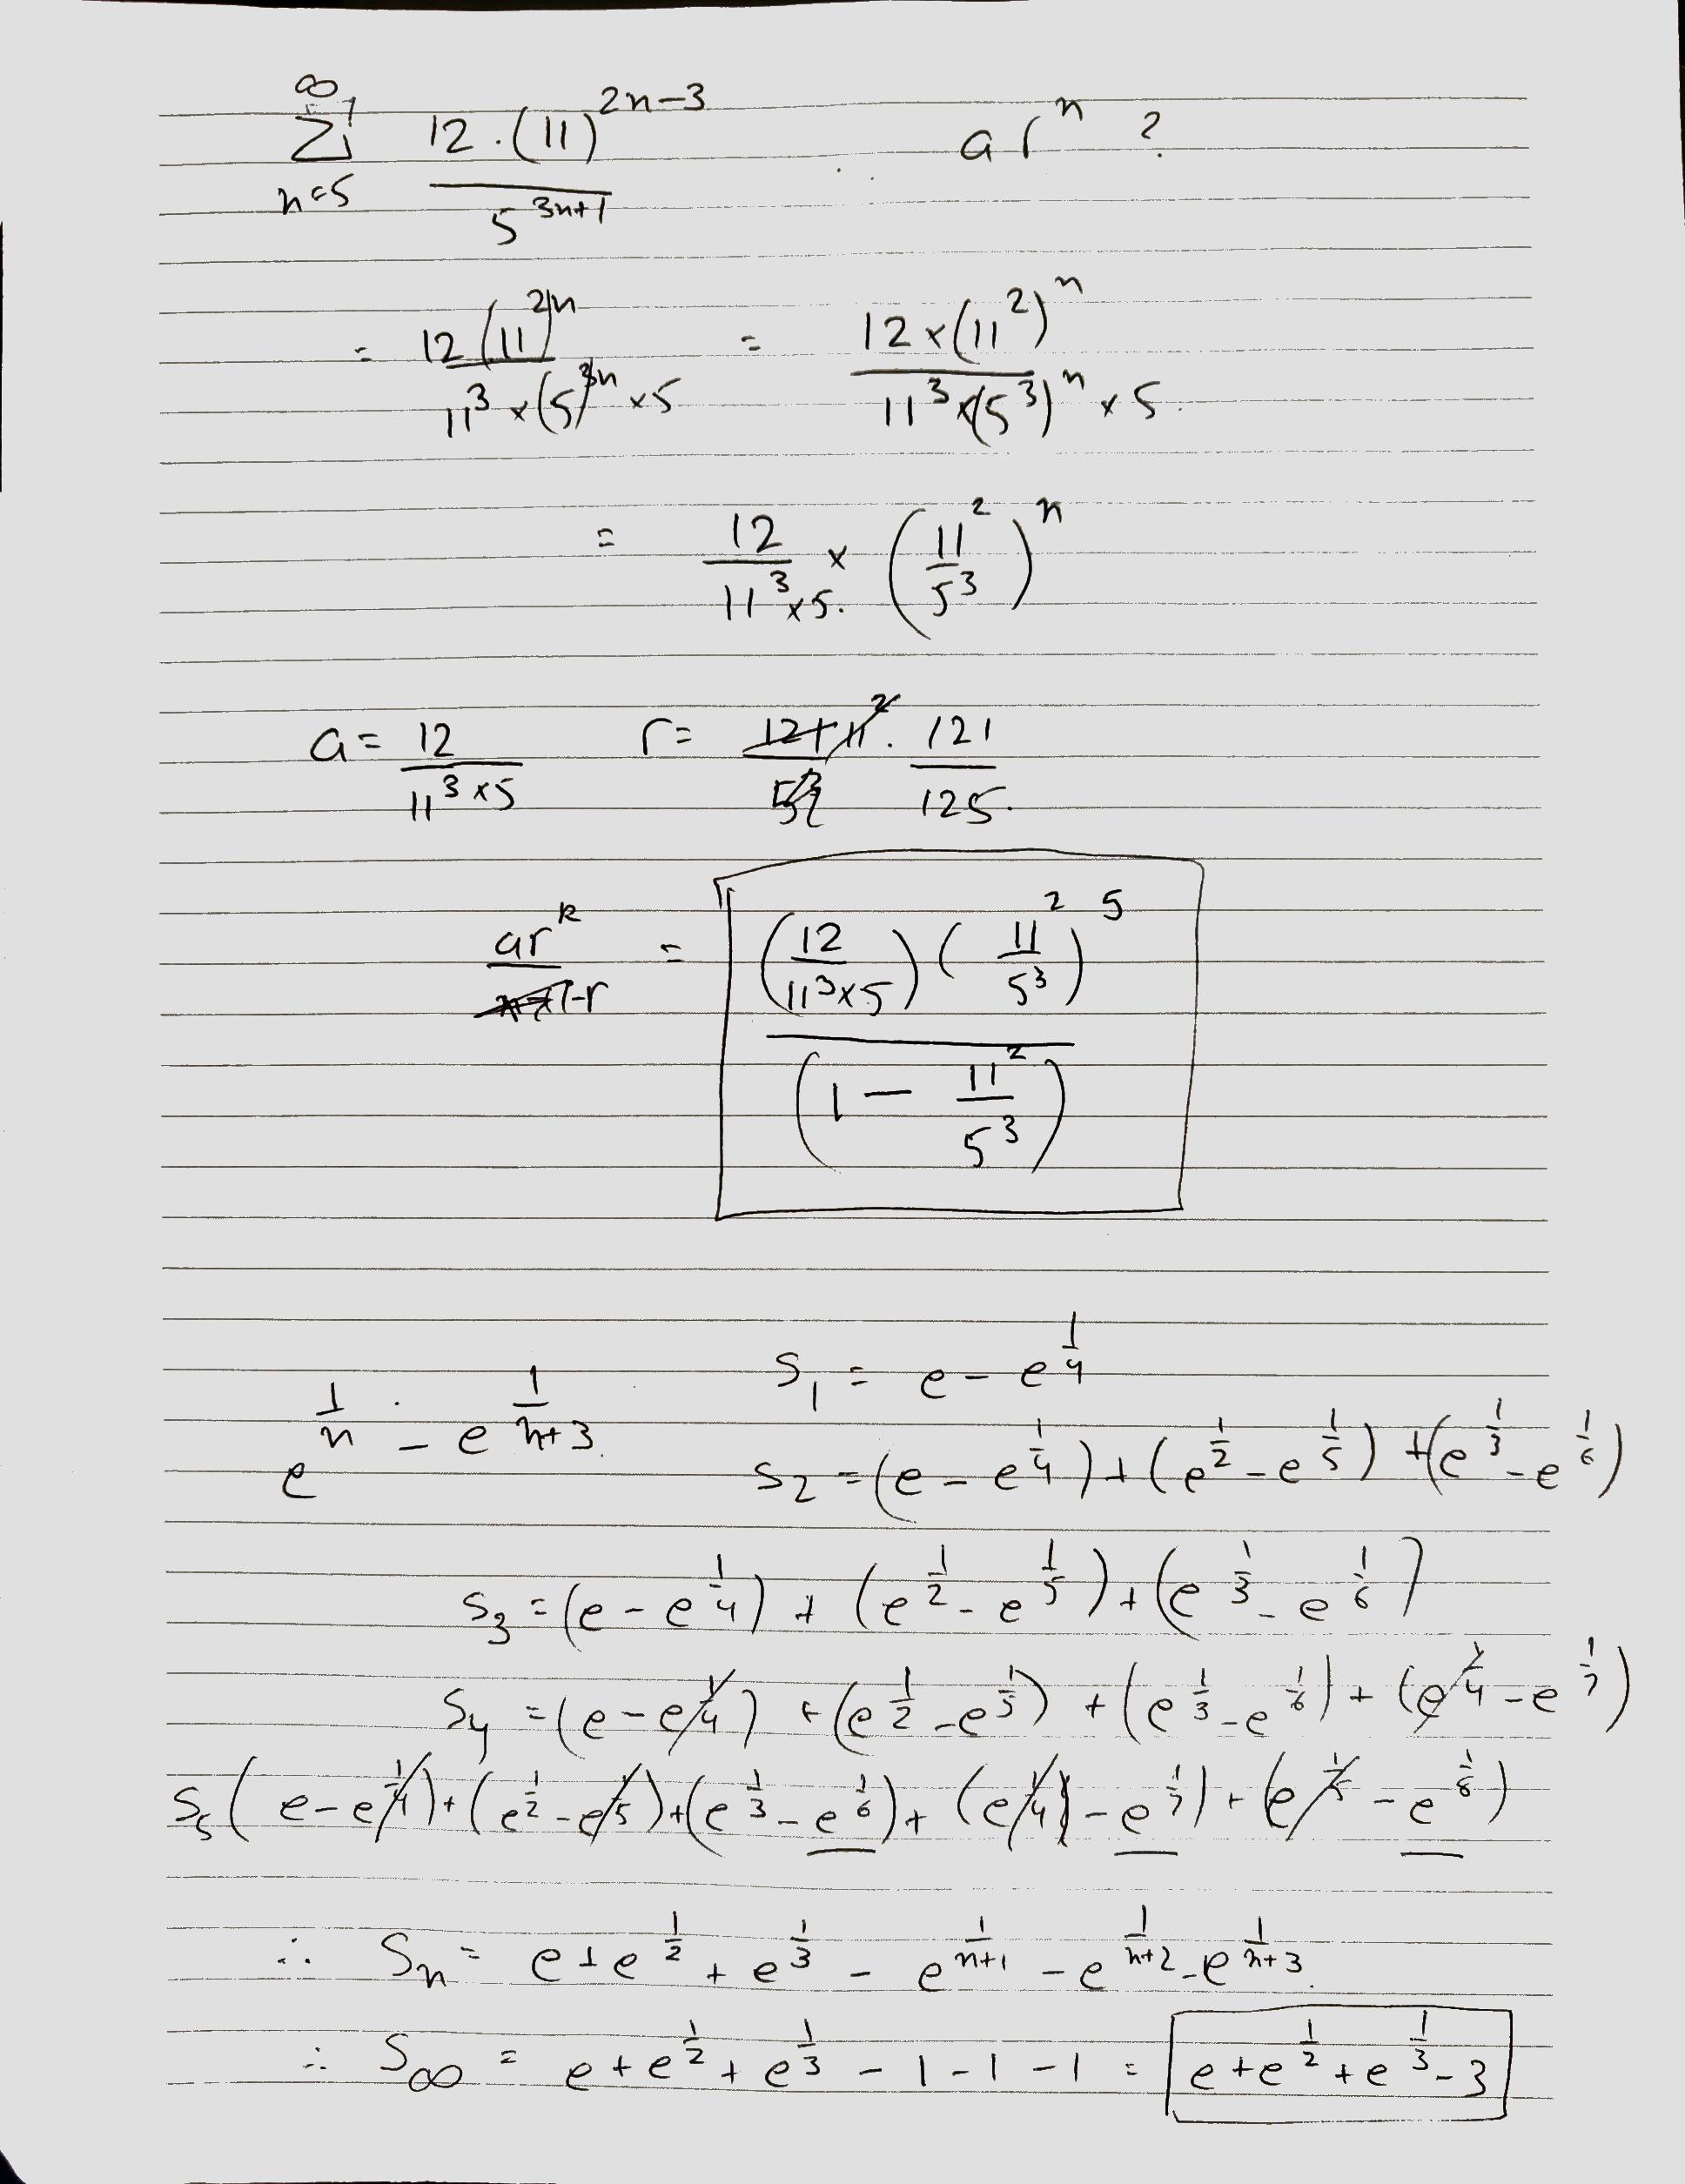 ∞
Σ 12 . (11)^{2n-3} / 5^{3n+1}    a r^n ?
n=5
= 12 (11)^{2n} / 11^3 × (5)^{3n} × 5 = 12 × (11^2)^n / 11^3 × (5^3)^n × 5.
= 12 / 11^3 × 5. × (11^2 / 5^3)^n
a = 12 / 11^3 × 5    r = 121 / 125.
ar^k / 1-r = (12 / 11^3 × 5) (11^2 / 5^3)^5 / (1 - 11^2 / 5^3)
S_1 = e - e^{1/4}
e^{1/n} - e^{1/n+3}.
S_2 = (e - e^{1/4}) + (e^{1/2} - e^{1/5}) + (e^{1/3} - e^{1/6})
S_3 = (e - e^{1/4}) + (e^{1/2} - e^{1/5}) + (e^{1/3} - e^{1/6})
S_4 = (e - e^{1/4}) + (e^{1/2} - e^{1/5}) + (e^{1/3} - e^{1/6}) + (e^{1/4} - e^{1/7})
S_5 (e - e^{1/4}) + (e^{1/2} - e^{1/5}) + (e^{1/3} - e^{1/6}) + (e^{1/4} - e^{1/7}) + (e^{1/5} - e^{1/8})
∴ S_n = e + e^{1/2} + e^{1/3} - e^{1/n+1} - e^{1/n+2} - e^{1/n+3}.
∴ S_∞ = e + e^{1/2} + e^{1/3} - 1 - 1 - 1 = e + e^{1/2} + e^{1/3} - 3